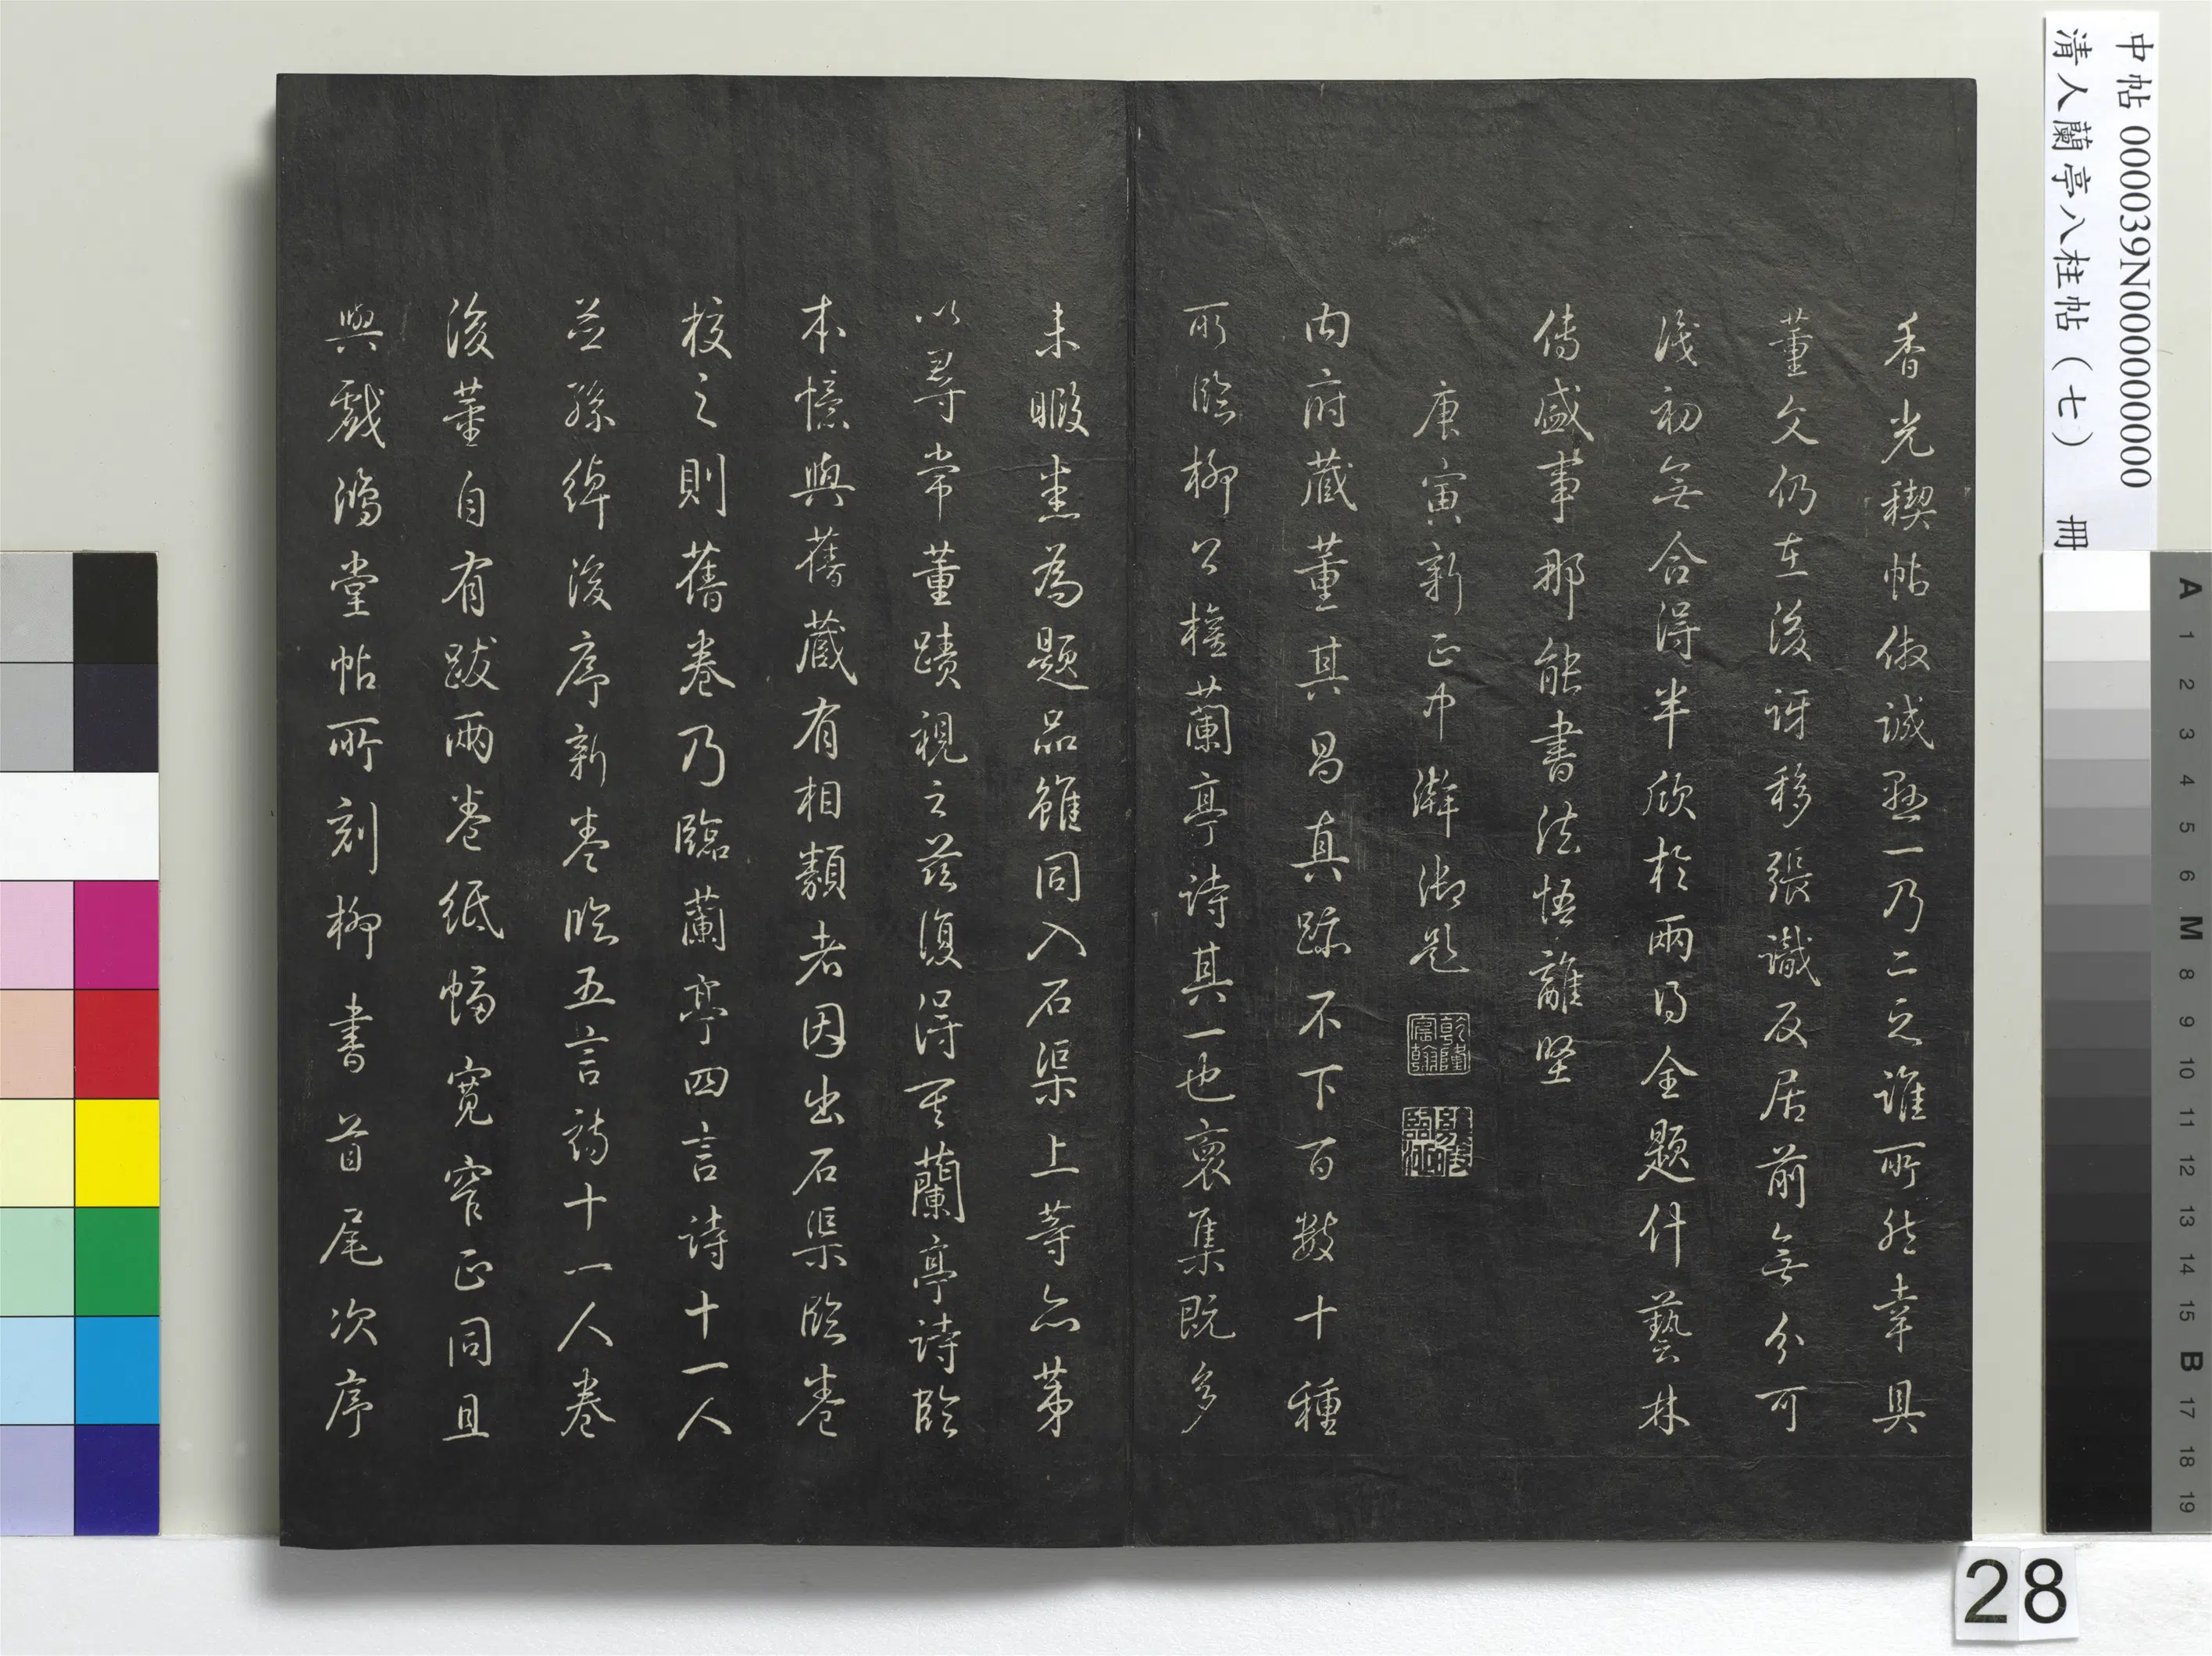 中帖 000039N000000000
清人蘭亭八柱帖（七） 冊
香光稧帖倣誠懸一乃二之誰所然幸具
董文仍在後訝移張識反居前無分可
淺初無合得半欣於兩得全題什藝林
傳盛事那能書法悟離堅
庚寅新正中澣御題
乾隆宸翰
幾暇臨池
內府藏董其昌真跡不下百數十種
所臨柳公權蘭亭詩其一也裒集既多
未暇悉為題品雖同入石渠上等亦第
以尋常董蹟視之茲復得其蘭亭詩臨
本憶與舊藏有相類者因出石渠臨卷
校之則舊卷乃臨蘭亭四言詩十一人
並孫綽後序新卷臨五言詩十一人卷
後董自有跋兩卷紙幅寬窄正同且
與戲鴻堂帖所刻柳書首尾次序
A 1 2 3 4 5 6 M 8 9 10 11 12 13 14 15 B 17 18 19
28